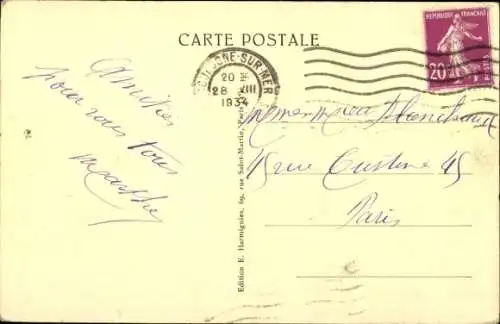 CARTE POSTALE
BOULOGNE-SUR-MER
20
28 VIII
1934
REPUBLIQUE FRANCAISE
20
Amitiés
pour vous tous
Marthe
45 rue Custine 45
Paris
Edition E. Harmignies, 69, rue Saint-Martin, Paris